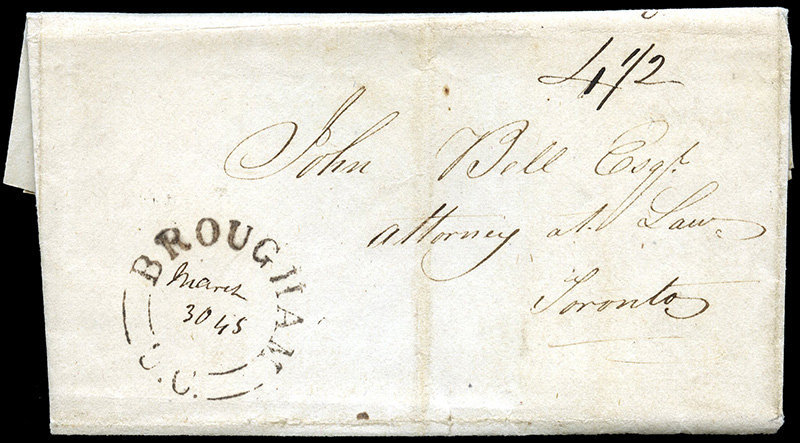 4 1/2
John Bell Esqr.
Attorney at Law
Toronto
BROUGHAM
March
30 45
U.C.